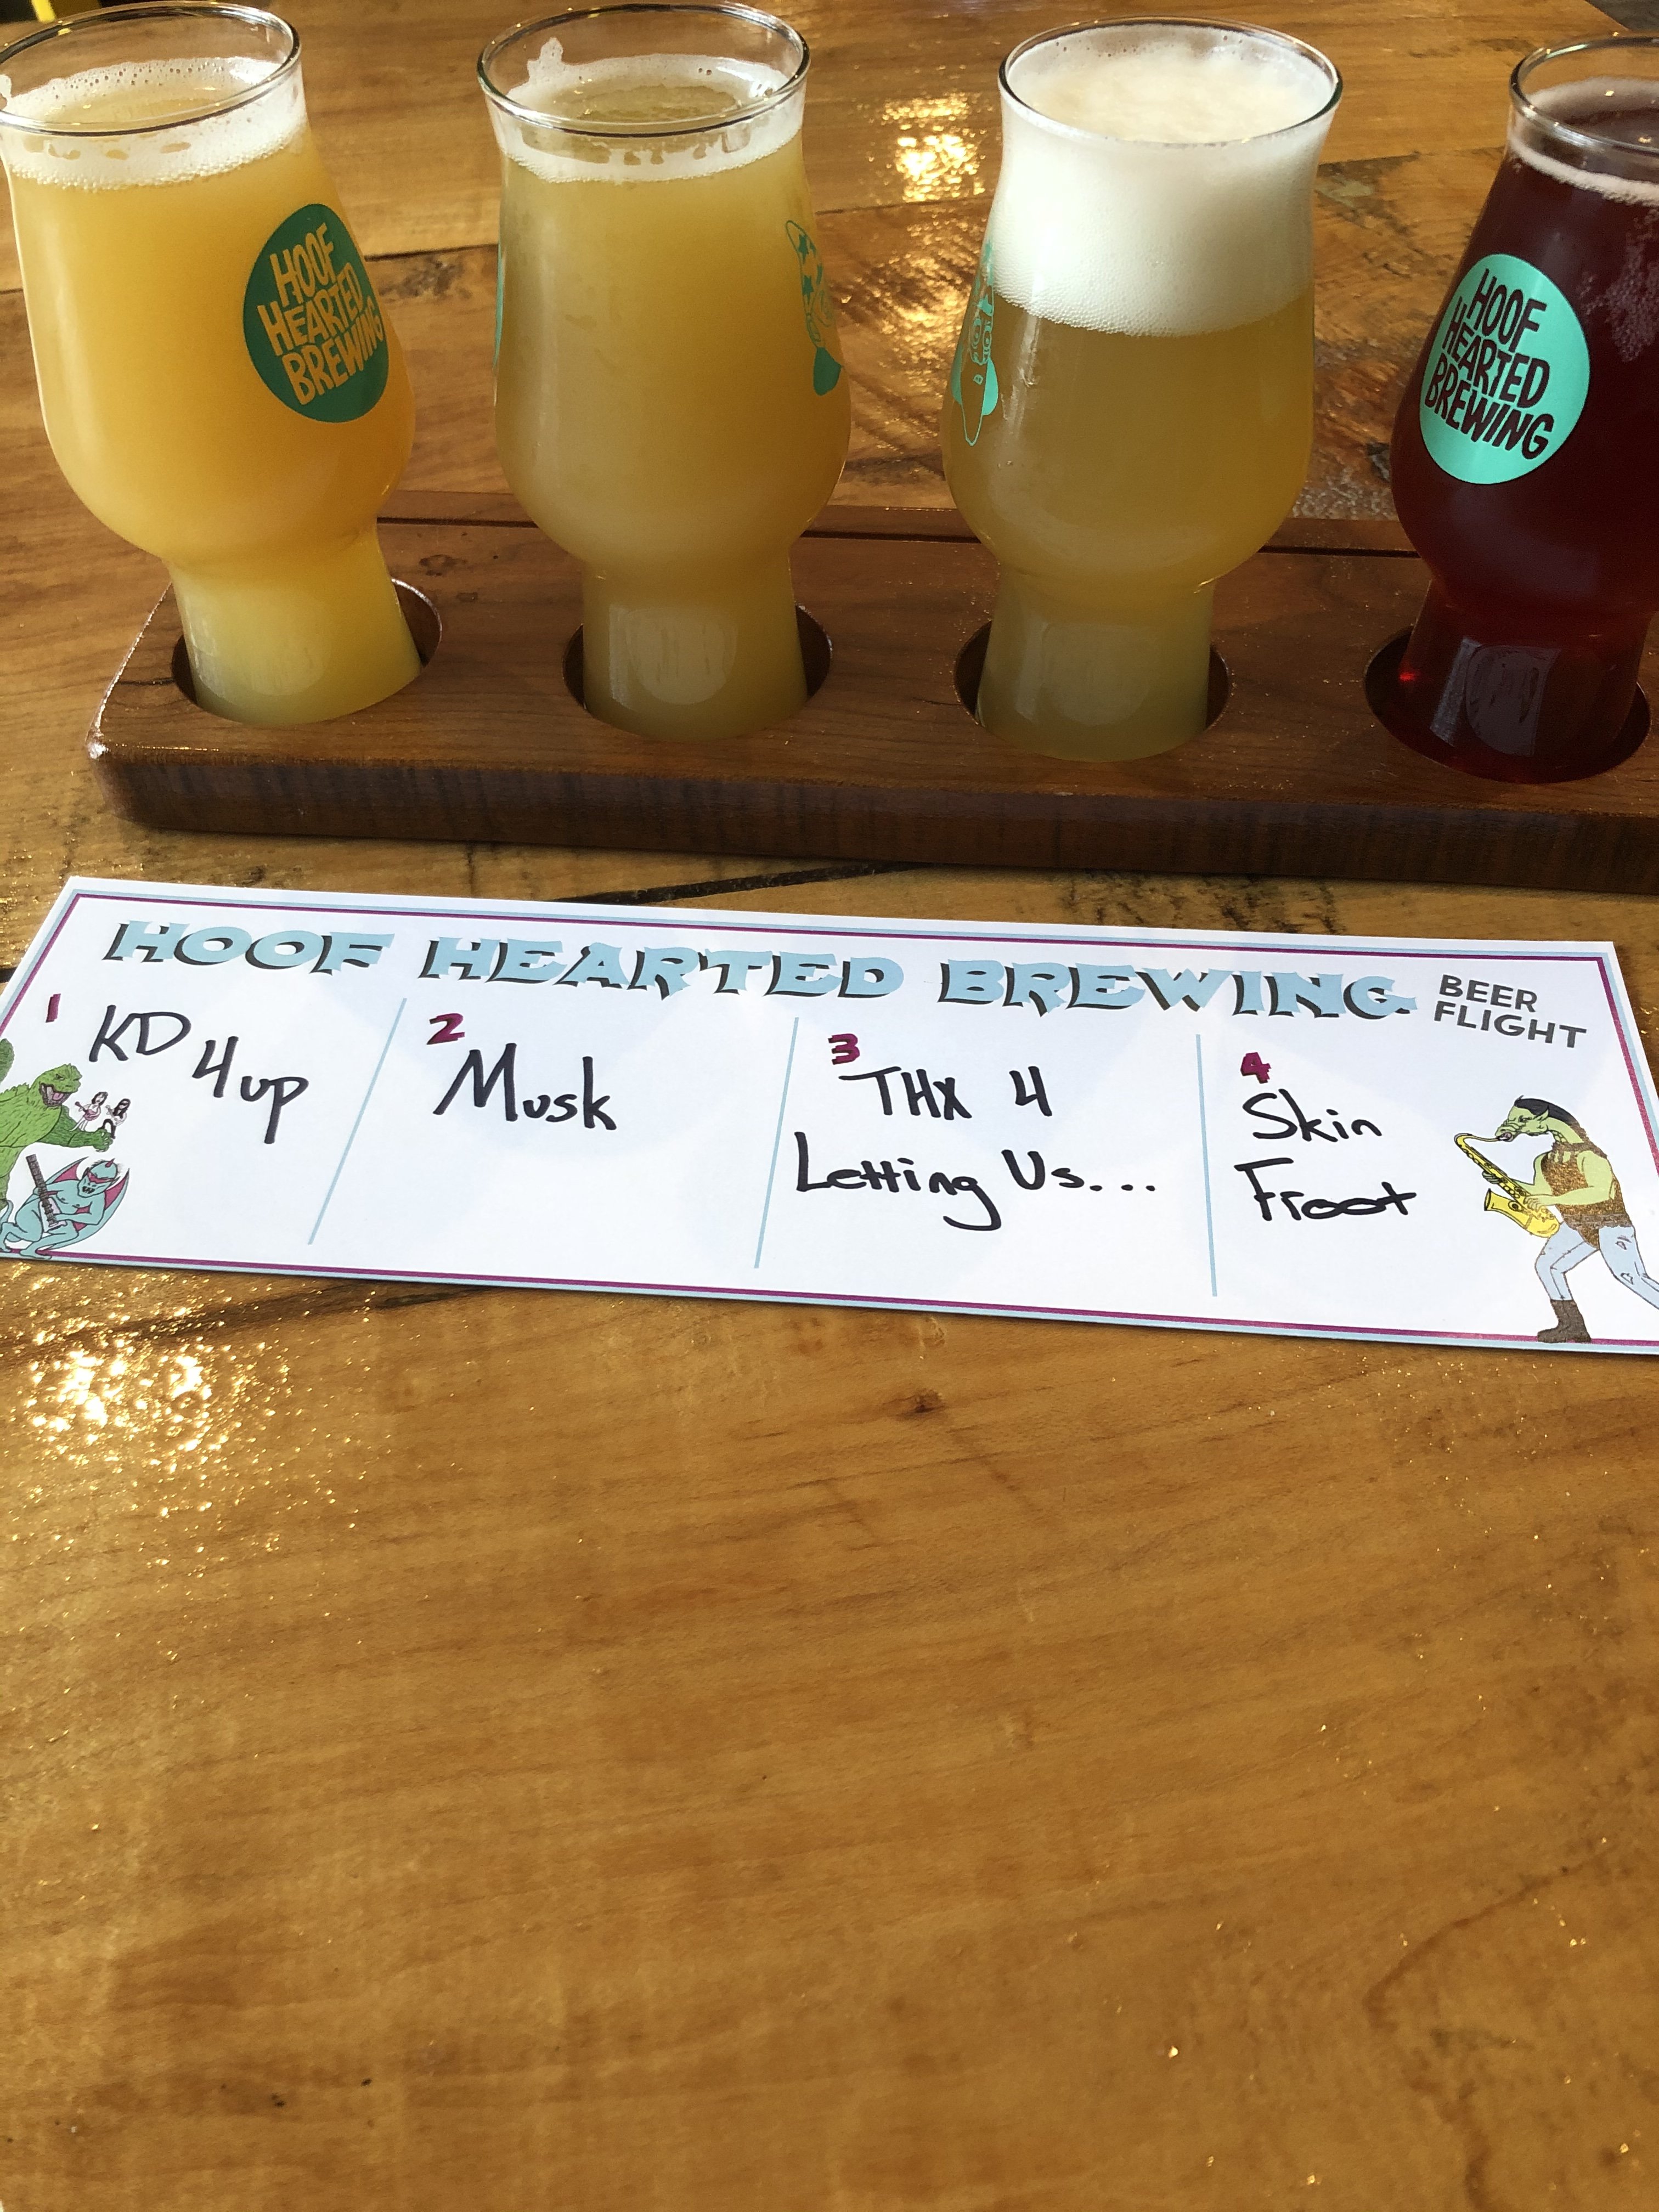 HOOF
HEARTED
BREWING
HOOF
HEARTED
BREWING
HOOF HEARTED BREWING
BEER
FLIGHT
1
KD
4up
2
Musk
3
THX 4
Letting Us...
4
Skin
Froot